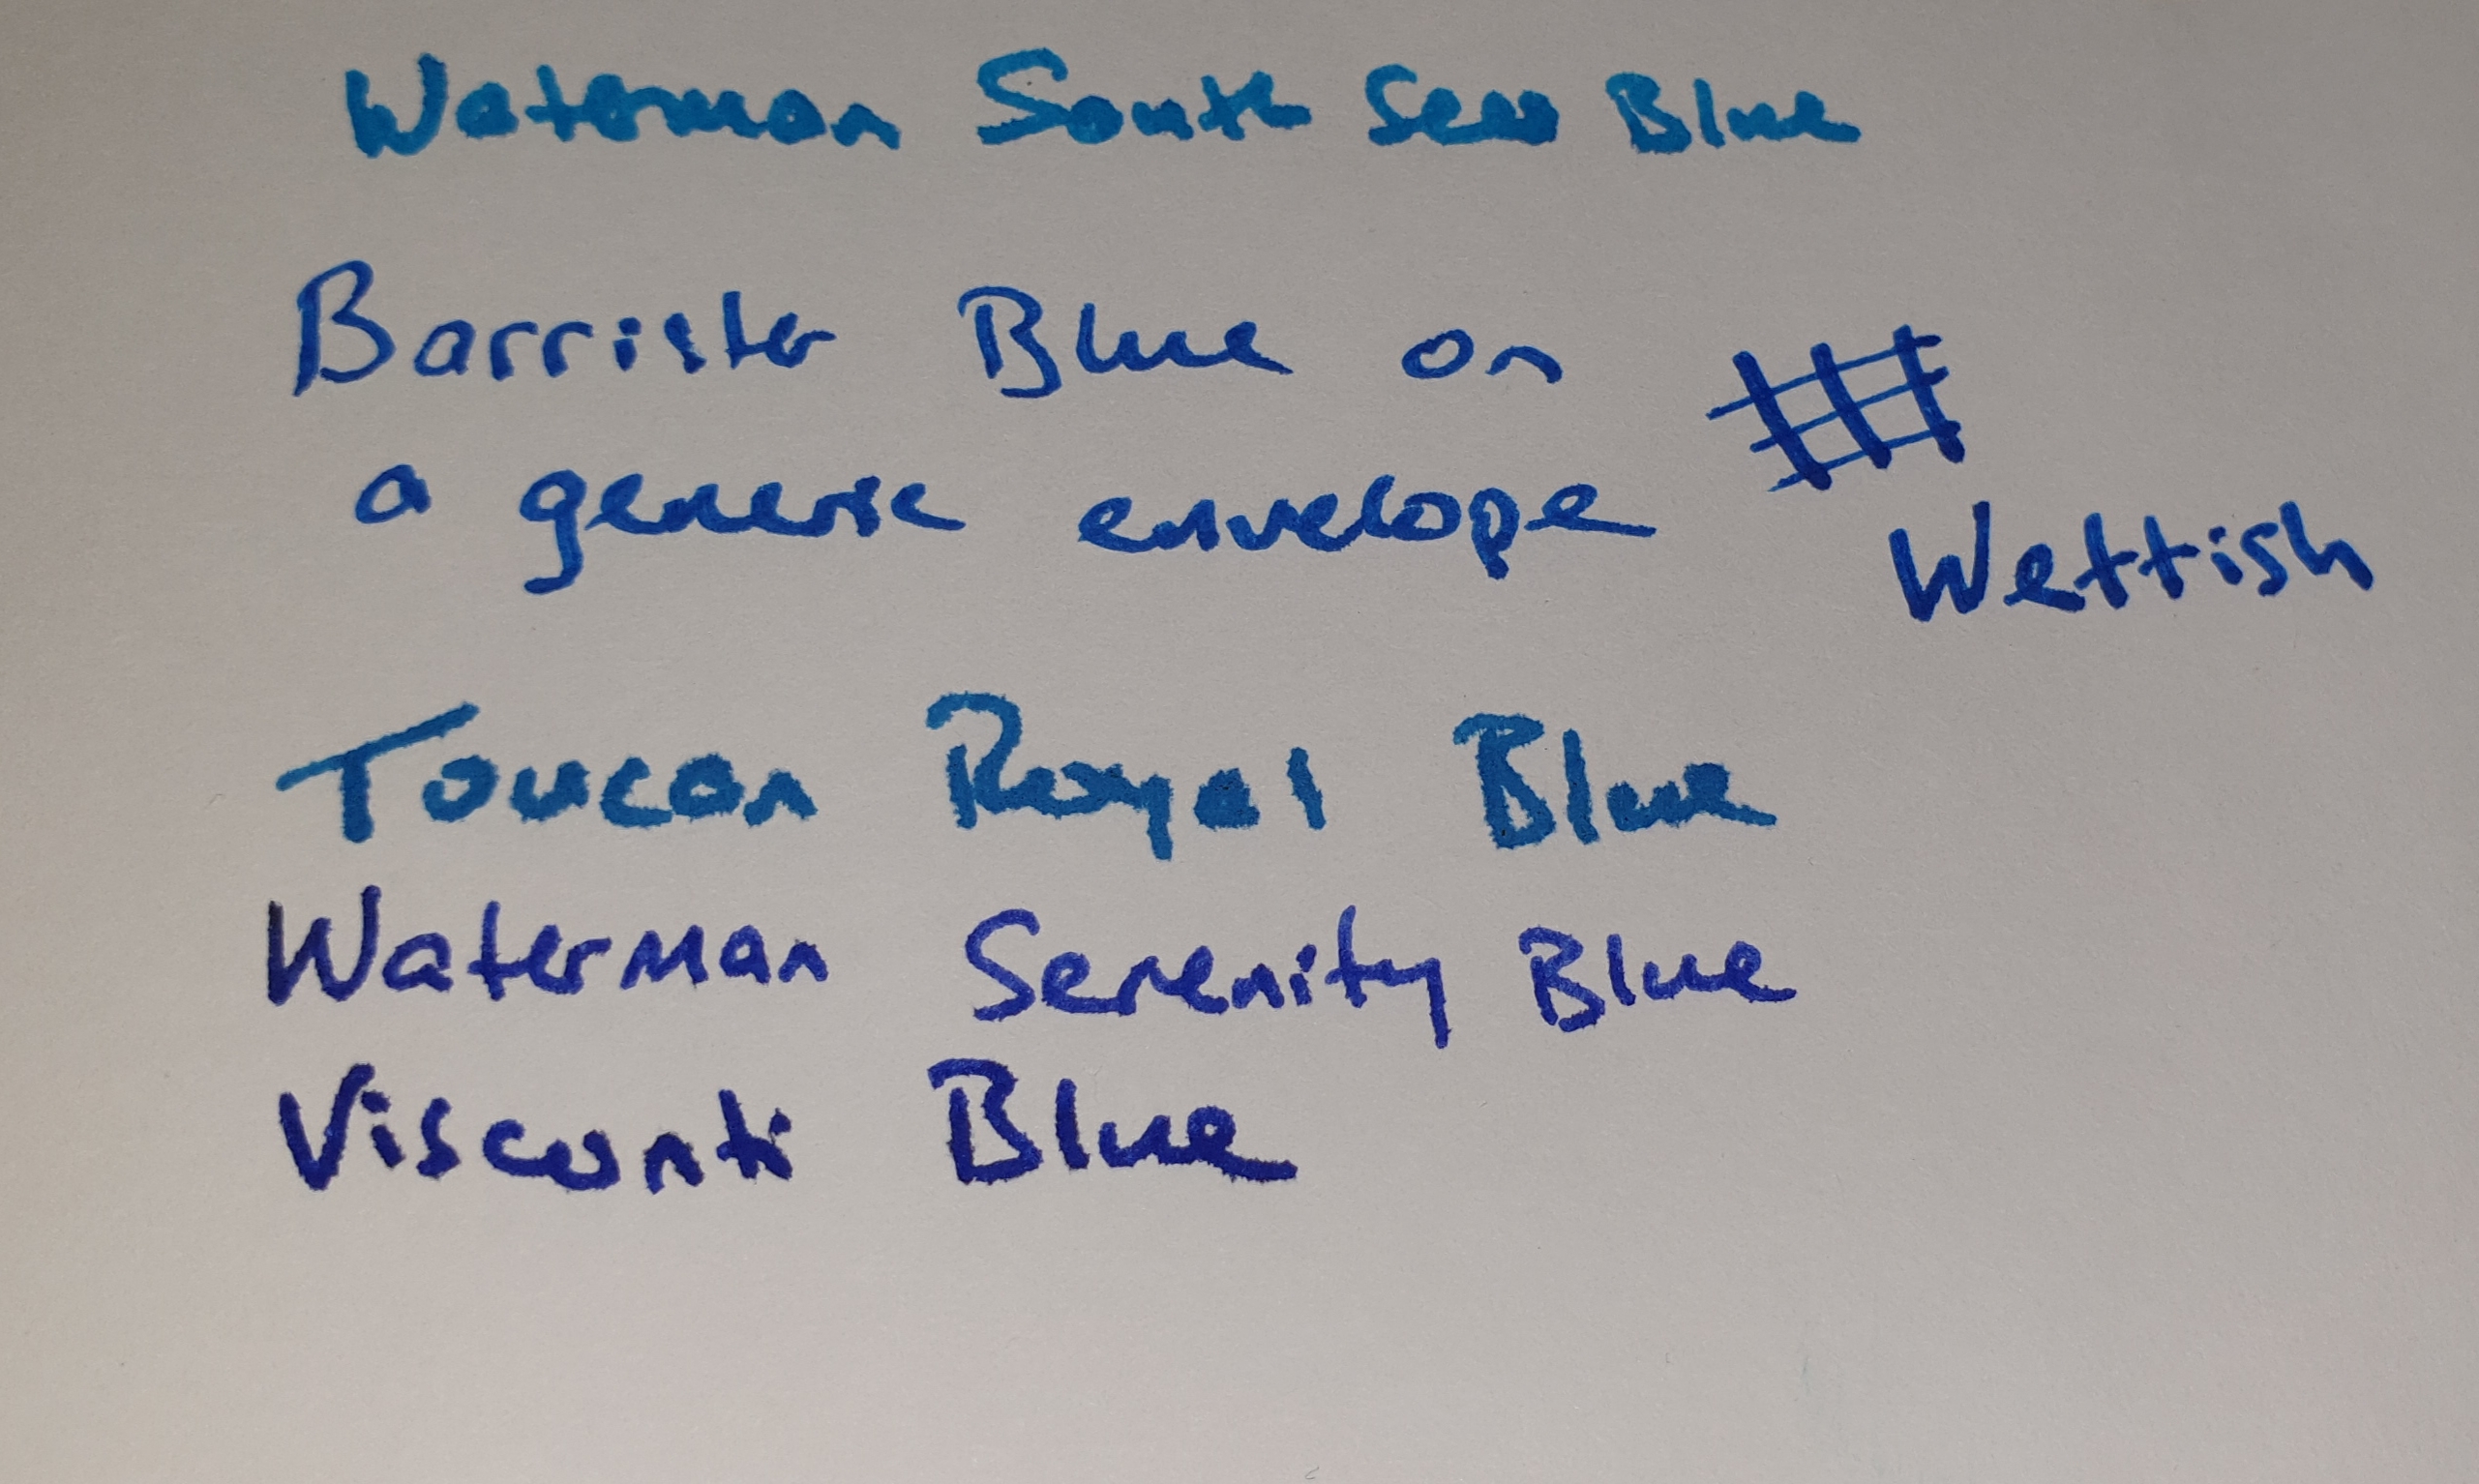 Waterman South Seas Blue
Barrister Blue on
a generic envelope
Wettish
Toucan Royal Blue
Waterman Serenity Blue
Visconti Blue